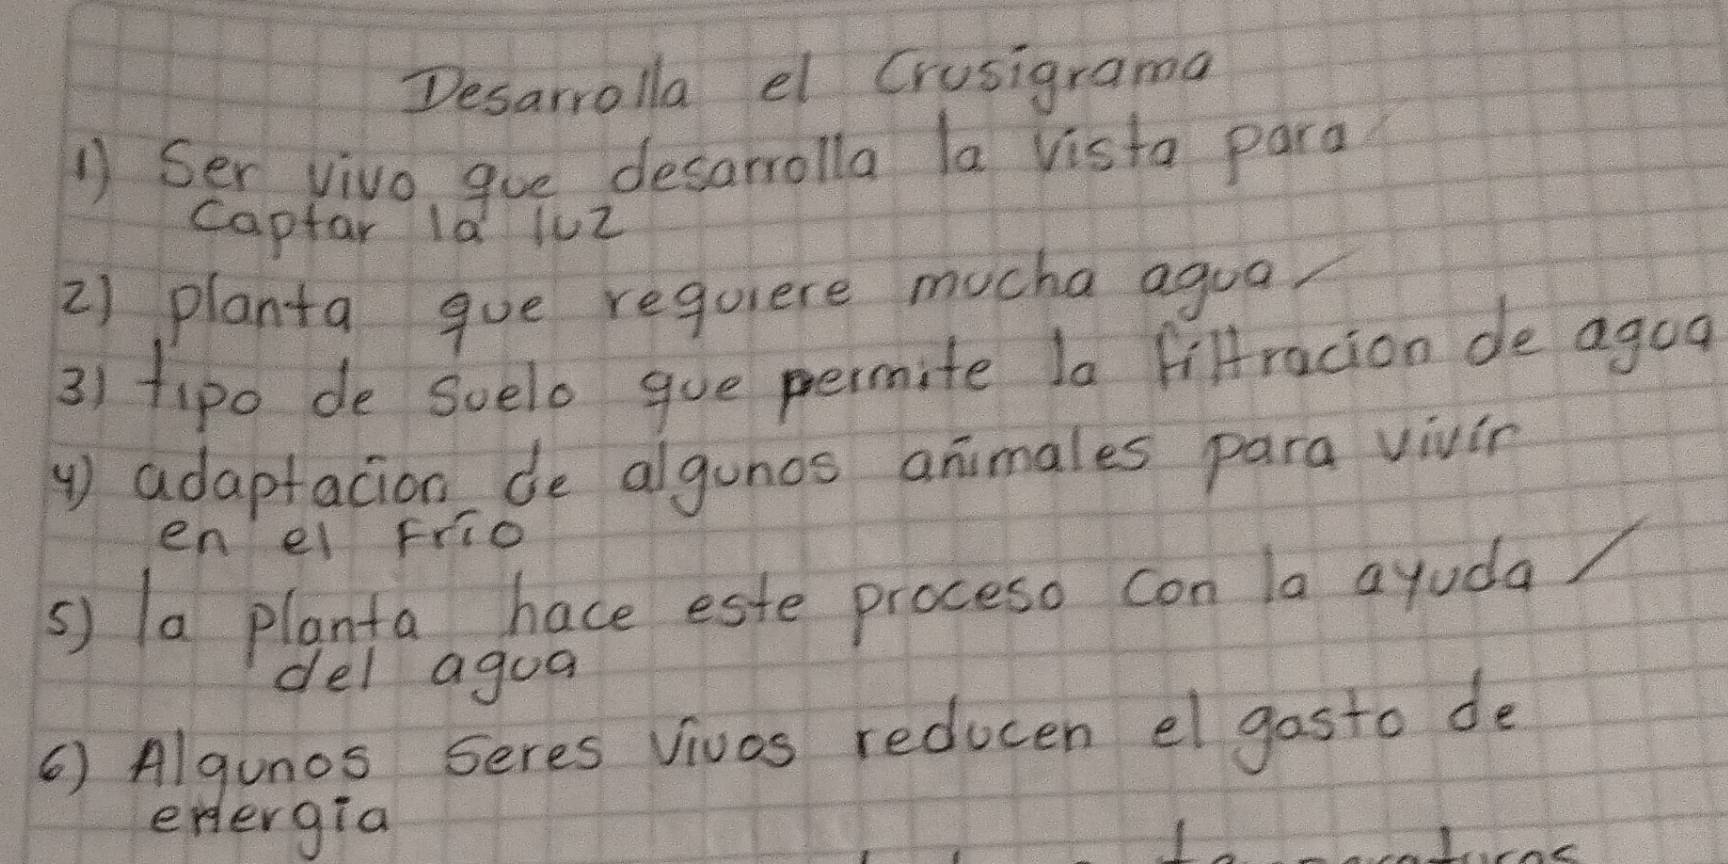 Desarrolla el Crusigrama
1) Ser vivo que desarrolla la vista para
captar la luz
2) planta que requiere mucha agua
3) tipo de suelo que permite la filtracion de agua
4) adaptacion de algunos animales para vivir
en el Frio
5) la planta hace este proceso con la ayuda
del agua
6) Algunos seres vivos reducen el gasto de
energia